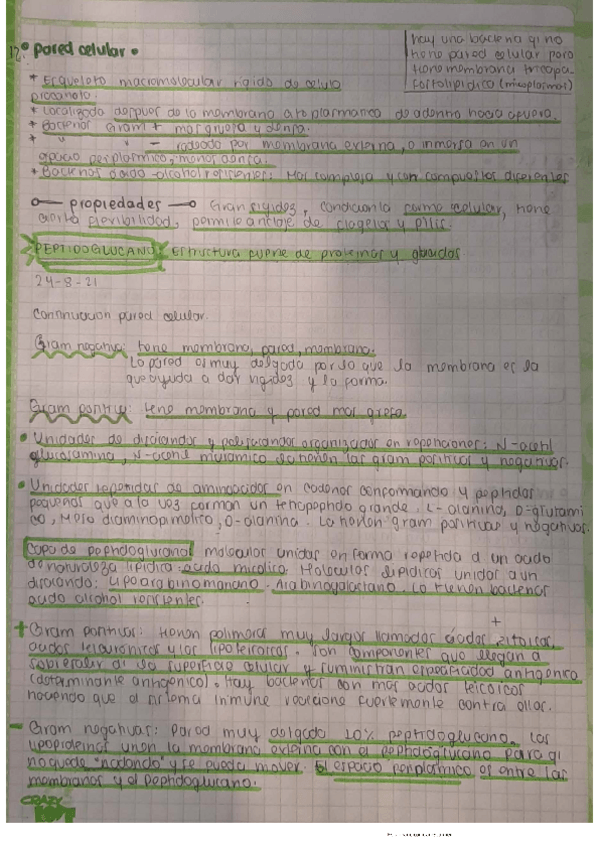 12° • pared celular •
hay una bacteria q no
tiene pared celular pero
tiene membrana tricapa
fosfolipidica (micoplasmas)
* Esqueleto macromolecular rigido de celula
procariota.
* Localizada despues de la membrana citoplasmatica de adentro hacia afuera.
* Bacterias Gram + mas gruesa y densa.
* " " - rodeada por membrana externa, o inmersa en un
espacio periplasmico, menos densa.
* Bacterias acido-alcohol resistentes: Mas compleja y con compuestos diferentes
propiedades Gran rigidez, condiciona la forma celular, tiene
cierta flexibilidad, permite anclaje de flagelos y pilis.
PEPTIDOGLUCANO: Estructura fuerte de proteinas y glucidos
24-8-21
Continuacion pared celular.
Gram negativa: tiene membrana, pared, membrana.
La pared es muy delgada por lo que la membrana es la
que ayuda a dar rigidez y la forma.
Gram positiva: tiene membrana y pared mas gruesa.
• Unidades de disacaridos y polisacaridos organizados en repeticiones: N-acetil
glucosamina, N-acetil muramico lo tienen las gram positivas y negativas.
• Unidades repetidas de aminoacidos en cadenas conformando y peptidos
pequeños que a la vez forman un tetrapeptido grande. L-alanina, D-glutami
co, Meso diaminopimelico, D-alanina. Lo tienen gram positivas y negativas.
Capa de peptidoglucano molecular unidas en forma repetida a un acido
de naturaleza lipidica: acido micolico. Moleculas lipidicas unidas a un
disacarido: Lipoarabinomanano. Arabinogalactano. Lo tienen bacterias
acido alcohol resistentes.
+
+ Gram positivas: Tienen polimeros muy largos llamados acidos
acidos teicuronicos y los lipoteicoicos. Son componentes que llegan a
sobresalir de la superficie celular y suministran especificidad antigenica
(determinante antigenico). Hay bacterias con mas acidos teicoicos
haciendo que el sistema inmune reaccione fuertemente contra ellas.
- Gram negativas: Pared muy delgada 10% peptidoglucano. Las
lipoproteinas unen la membrana externa con el peptidoglucano para q
no quede "nadando" y se pueda mover. El espacio periplasmico es entre las
membranas y el peptidoglucano.
CRAZY